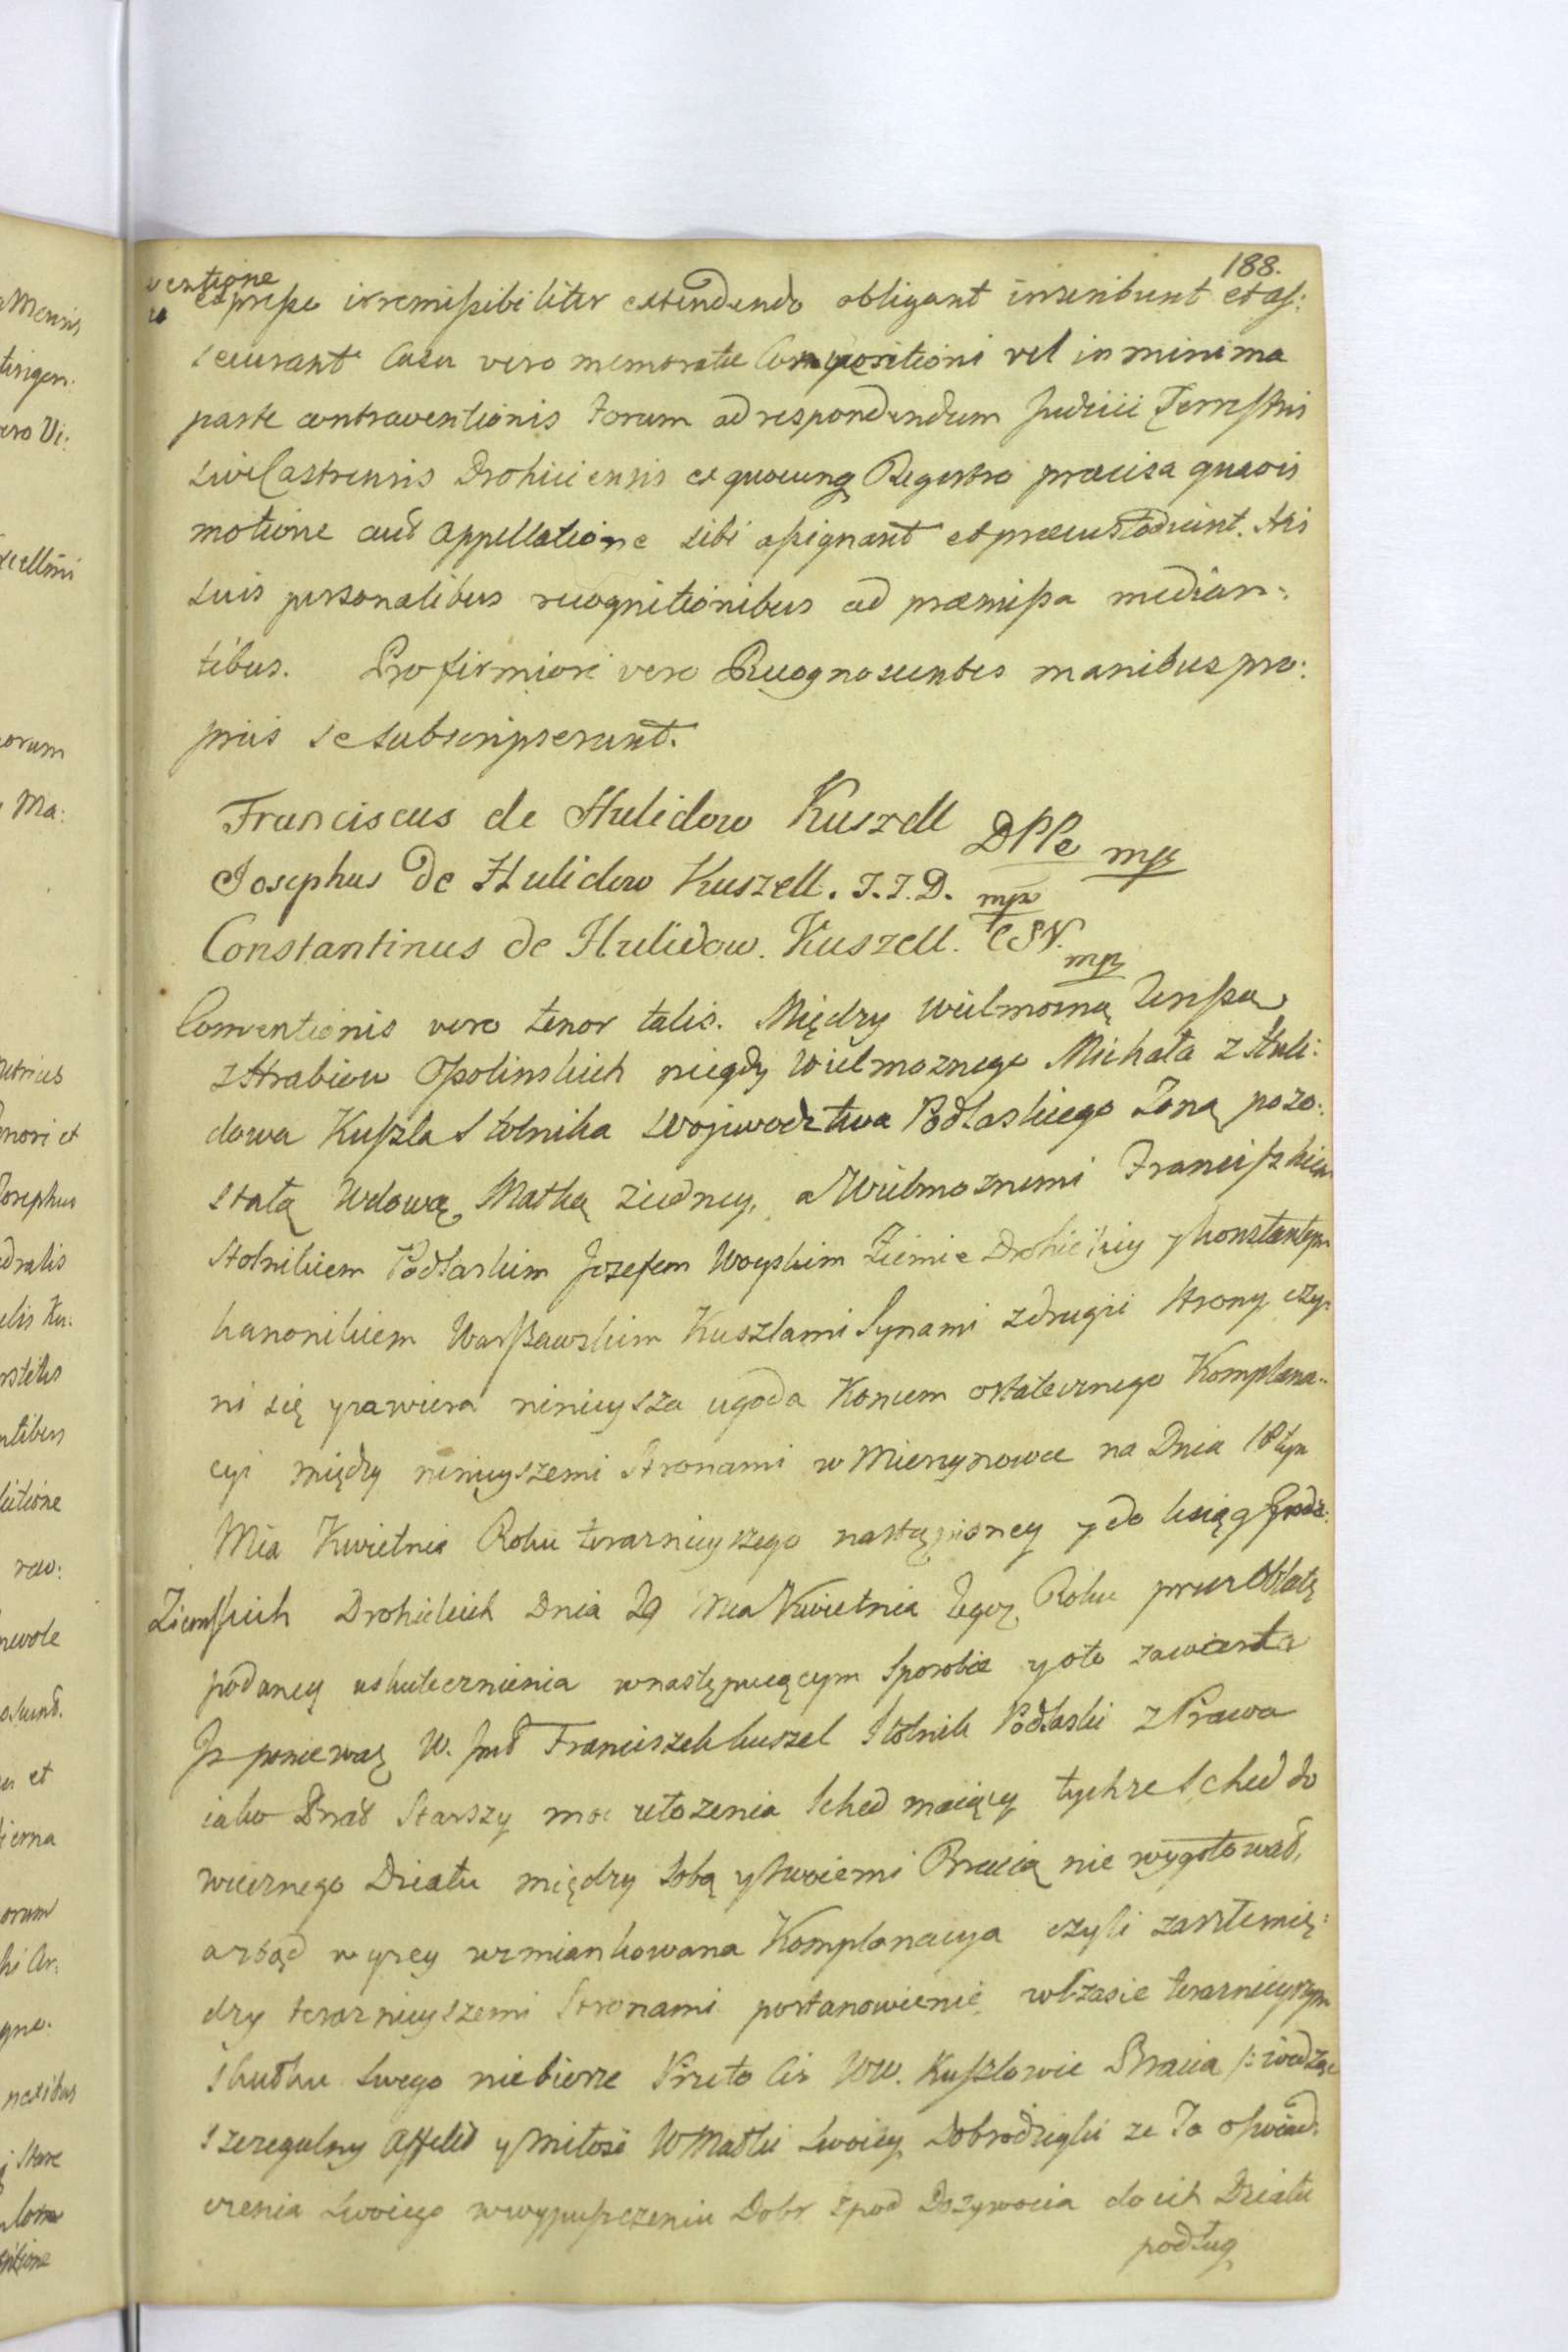 188.
ventione
expresse irremissibiliter extendendo obligant inscribunt et as:
securant Casu vero memoratæ Compositioni vel in minima
parte contraventionis Forum ad respondendum Judicii Terrestris
sive Castrensis Drohiciensis ex quocunq Regestro præcisa quavis
motione aut appellatione sibi assignant et præcustodiunt. His
suis personalibus recognitionibus ad præmissa median:
tibus. Pro firmiori vero Recognoscentes manibus pro:
priis se subscripserunt.
Franciscus de Hulidow Kuszell DPPe mp
Josephus De Hulidow Kuszell. J.T.D. mp
Constantinus de Hulidow. Kuszell. CSV. mp
Conventionis vero tenor talis. Między Wielmożną Teressą
z Hrabiow Opolinskich niegdy Wielmoznego Michała z Huli:
dowa Kuszla Stolnika Wojewodztwa Podlaskiego Zoną pozo:
stałą Wdową, Matką ziedney, a Wielmoznemi Franciszkiem
Stolnikiem Podlaskim Jozefem Woyskim Ziemie Drohickiy y Konstantym
kanonikiem Warszawskim Kuszlami Synami z drugiei strony czy:
ni się y zawiera ninieysza ugoda Koncem ostatecznego Komplana:
cyi między ninieyszemi Stronami w Mierzynowce na Dniu 18 tym
Mia Kwietnia Roku terazniejszego nastąpioney y do ksiąg Grodz:
Ziemskich Drohickich Dnia 29 Mca Kwietnia Tegoż Roku przez Oblatę
podaney uskutecznienia w następuiącym Sposobie y oto zawarta
Iz ponieważ W. Jmć Franciszek Kuszel Stolnik Podlaski z Prawa
iako Brat Starszy moc ułozenia Sched maiący tychze Sched do
wiecznego Działu między Sobą y Swoiemi Bracią nie wygotował,
a ztąd wyzey wzmiankowana Komplanacya czyli zaszłe mię:
dzy terazniejszemi Stronami postanowienie w Czasie terazniejszym
Skutku swego niebierze Przeto Ciz WW. Kuszlowie Bracia
szczegulny Affekt y Miłość W Matki Swoiey Dobrodziejki ze Ta oswiad:
czenia Swoiego w wypuszczeniu Dobr zpod Dozywocia do ich Działu
podług